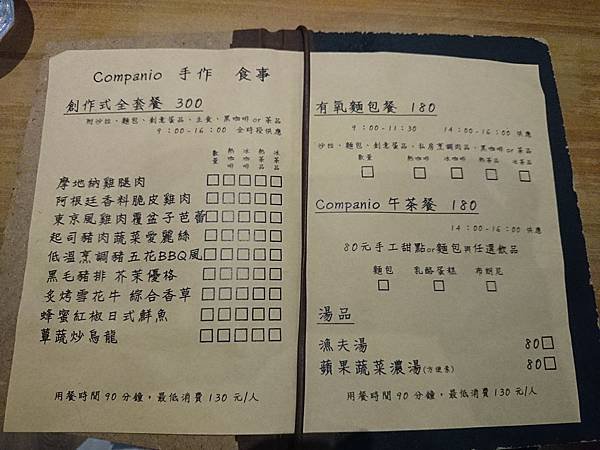 Companio 手作 食事
創作式全套餐 300
附沙拉、麵包、創意蛋品、主食、黑咖啡or茶品
9：00-16：00 全時段供應
數量 熱咖啡 冰咖啡 熱茶品 冰茶品
摩地納雞腿肉
阿根廷香料脆皮雞肉
東京風雞肉覆盆子芭蕾
起司豬肉蔬菜愛麗絲
低溫烹調豬五花BBQ風
黑毛豬排 芥茉優格
炙烤雪花牛 綜合香草
蜂蜜紅椒日式鮮魚
蕈蔬炒烏龍
用餐時間90分鐘，最低消費130元/人
有氧麵包餐 180
9：00-11:30 14：00-16:00 供應
沙拉、麵包、創意蛋品、私房烹調肉品、黑咖啡or茶品
數量 熱咖啡 冰咖啡 熱茶品 冰茶品
Companio 午茶餐 180
14：00-16：00 供應
80元手工甜點or麵包與任選飲品
麵包 乳酪蛋糕 布朗尼
湯品
漁夫湯 80
蘋果蔬菜濃湯(方便素) 80
用餐時間90分鐘，最低消費130元/人